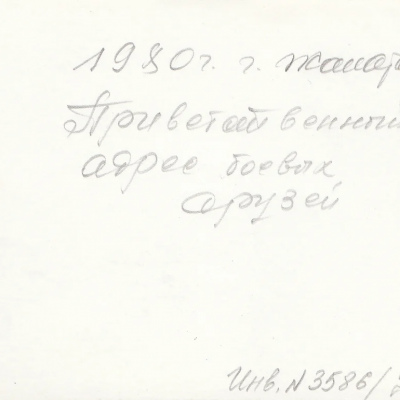 1980г. г. Жанат
Приветственный
адрес боевых
друзей
Инв. N3586/